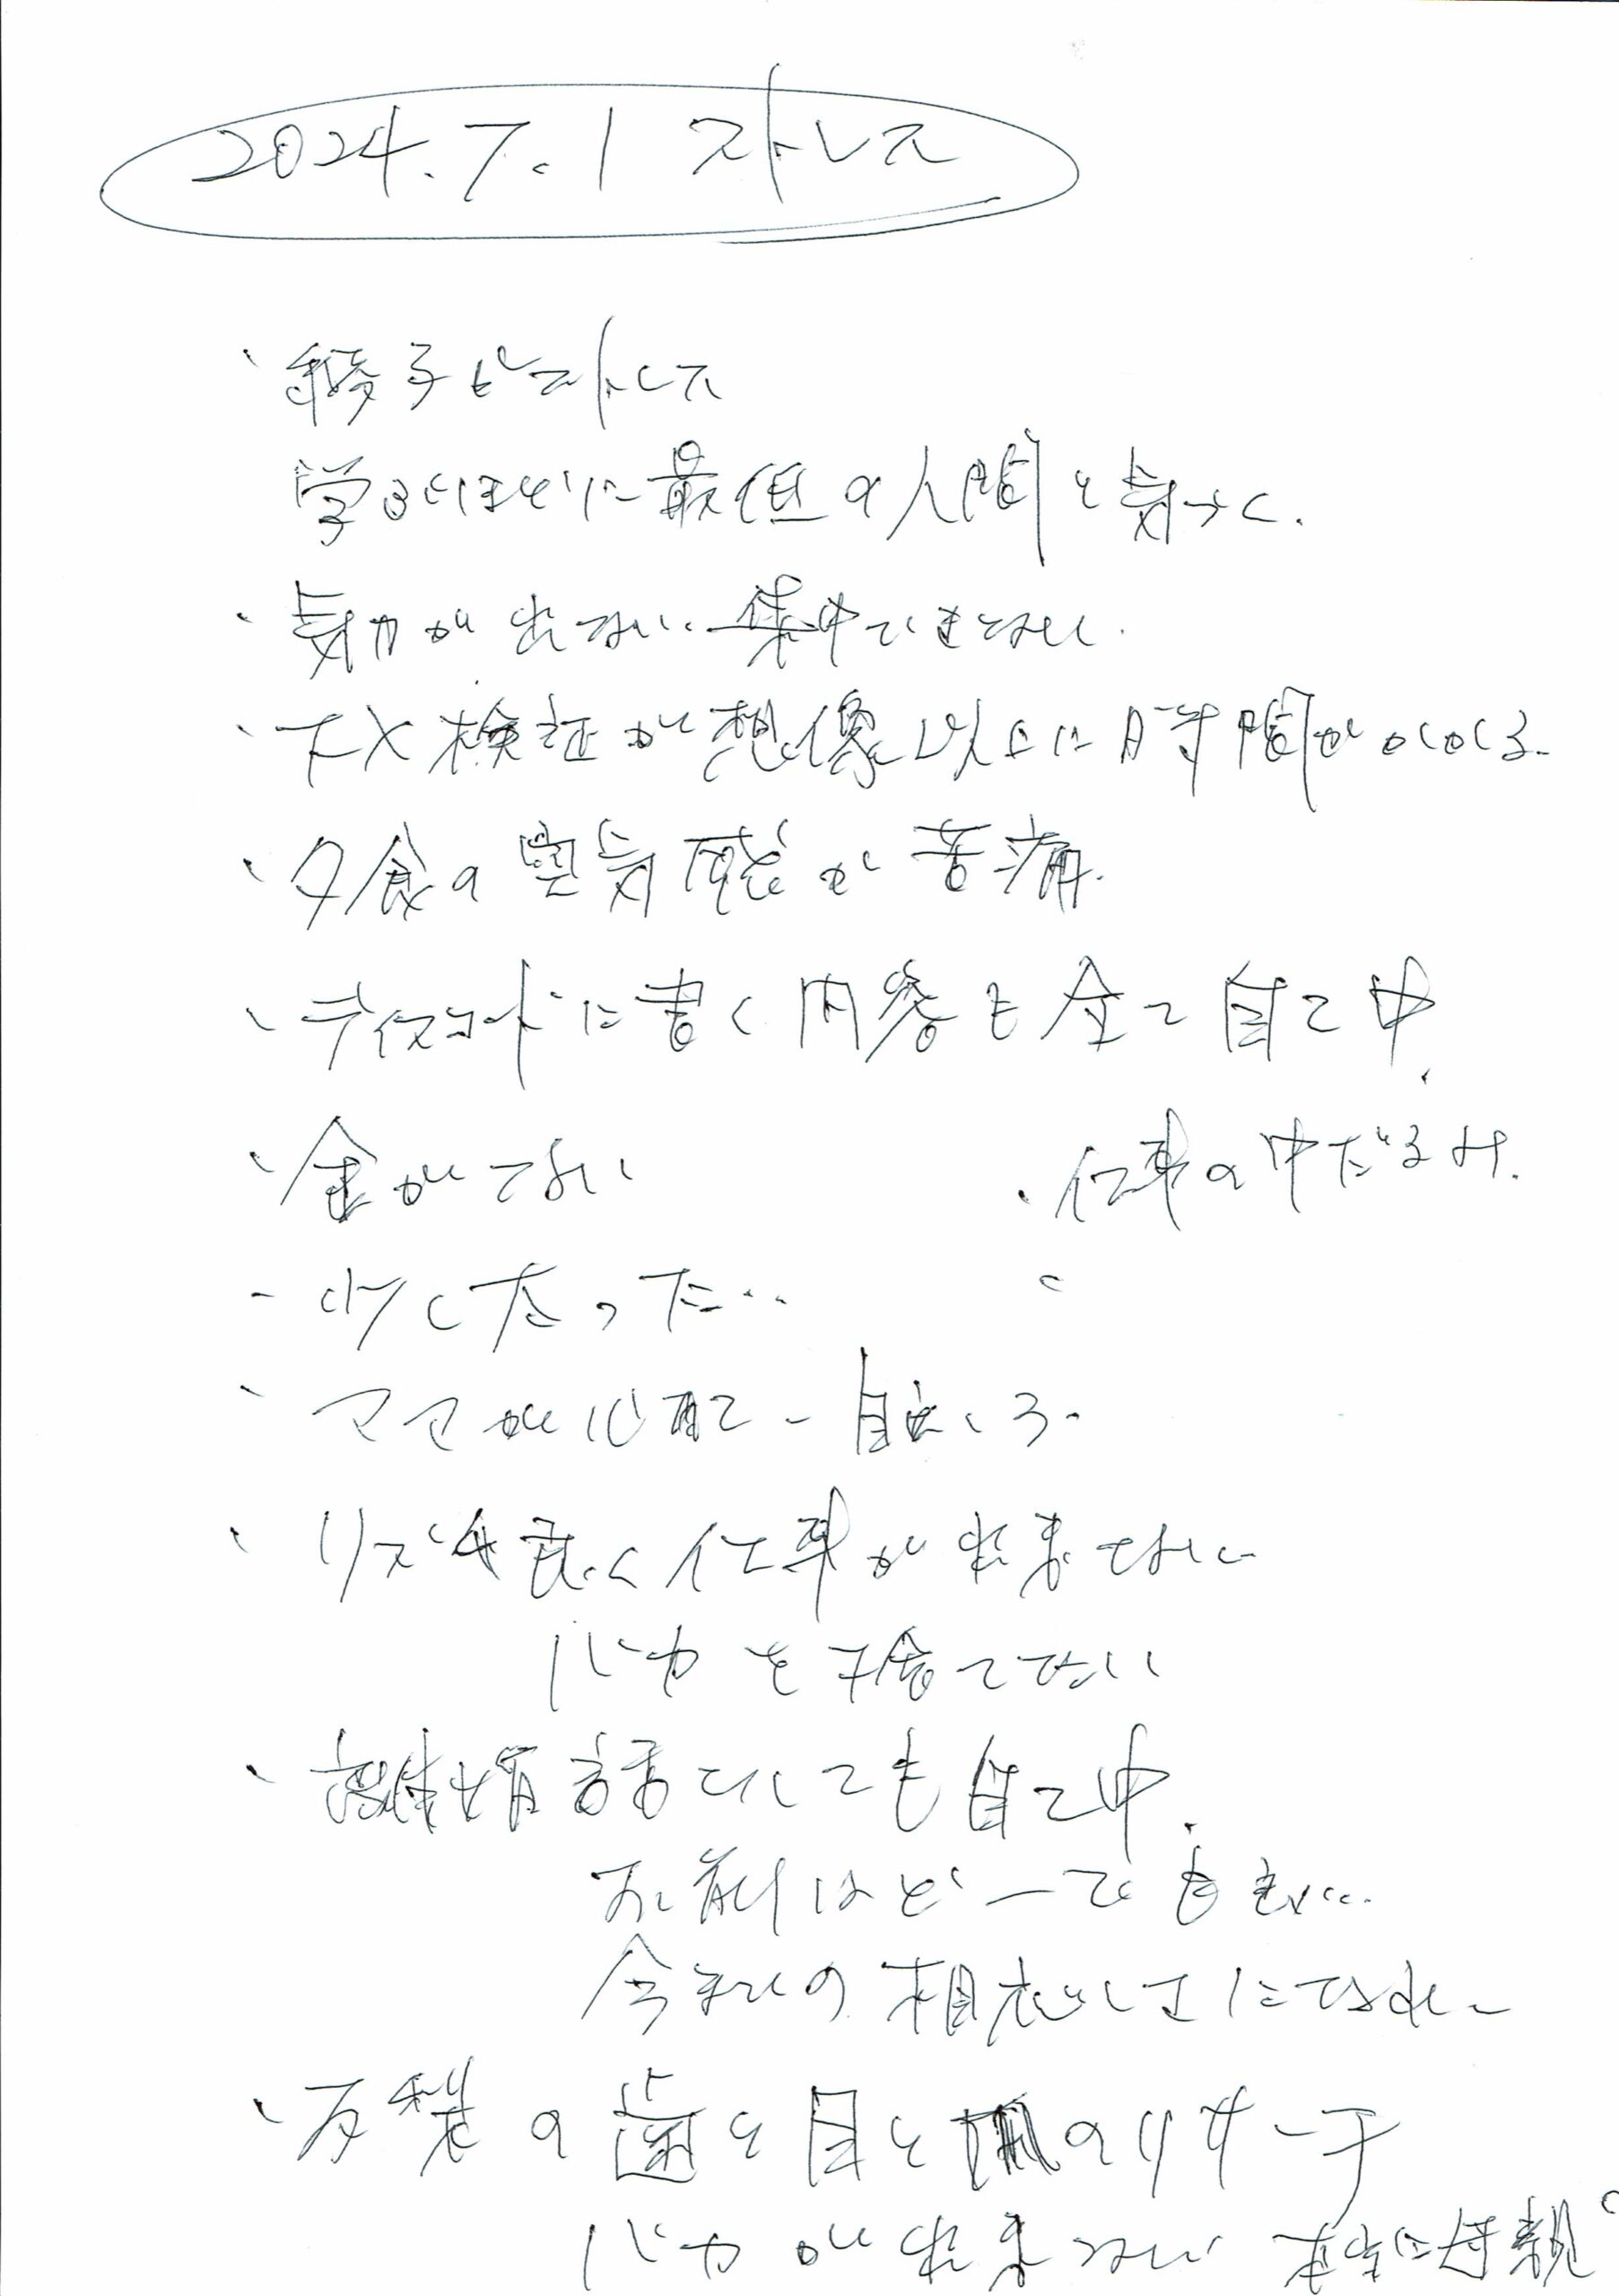 2024.7.1 ストレス
・綾子がストレス
学ぶほどに最低の人間と気づく.
・気力が出ない. 集中できない.
・FX検証が想像以上に時間がかかる.
・夕食の空気感が苦痛.
・ディスコードに書く内容も全て自己中.
・金がない ・仕事の中だるみ.
・少し太った…
・ママが心配
・リズム良く仕事が出来ない
バカを捨てない
・離婚話にしても自己中.
お前はどーでもいい…
今までの相応しさにない
・友梨の歯と目と のリサーチ
バカが出来ない 本当に母親